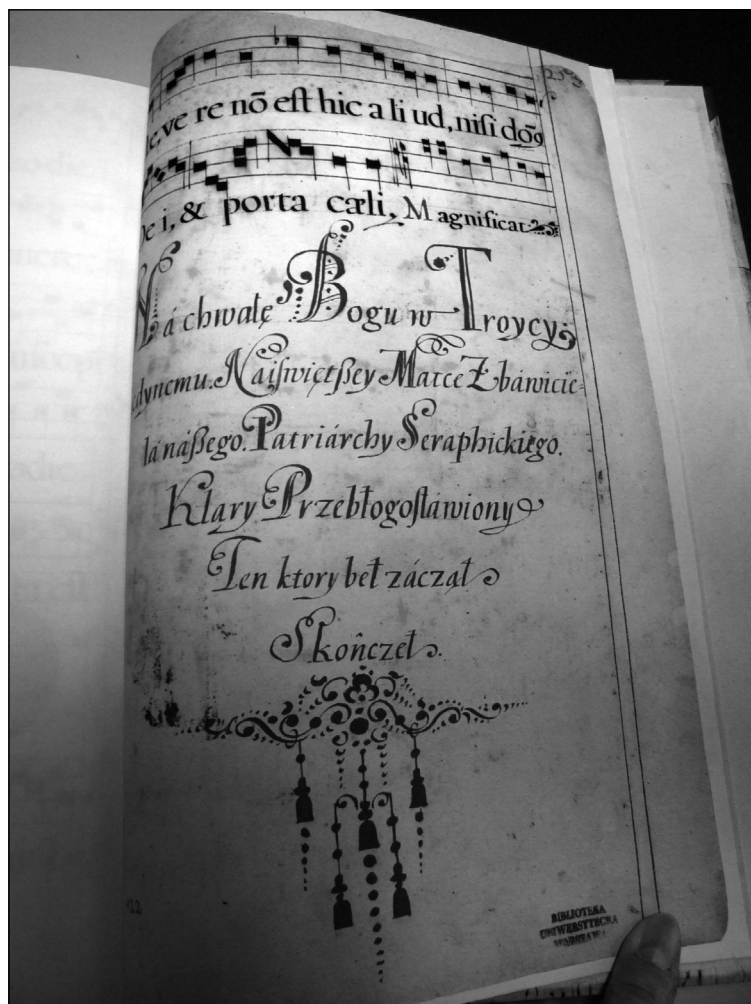 ve re nō est hic a li ud, nisi
& porta cæli, Magnificat
Ná chwałę Bogu w Troycy
Naiſwiętßey Matce Zbáwicie-
lá náßego. Patriárchy Seraphickiego.
Klary Przebłogoſłáwiony
Ten ktory beł záczął
Skończeł.
BIBLIOTEKA
UNIWERSYTECKA
WARSZAWA